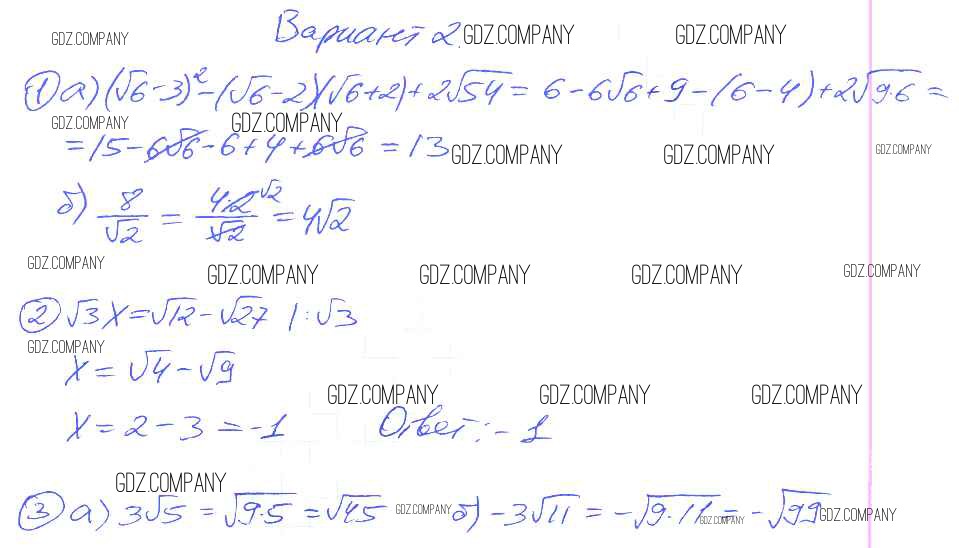 GDZ.COMPANY Вариант 2. GDZ.COMPANY GDZ.COMPANY
① а) (√6-3)² - (√6-2)(√6+2) + 2√54 = 6 - 6√6 + 9 - (6-4) + 2√9·6 =
GDZ.COMPANY GDZ.COMPANY
= 15 - 6√6 - 6 + 4 + 6√6 = 13 GDZ.COMPANY GDZ.COMPANY GDZ.COMPANY
б) 8/√2 = 4·2^√2/√2 = 4√2
GDZ.COMPANY GDZ.COMPANY GDZ.COMPANY GDZ.COMPANY GDZ.COMPANY
② √3 X = √12 - √27 | : √3
GDZ.COMPANY
X = √4 - √9
GDZ.COMPANY GDZ.COMPANY GDZ.COMPANY
X = 2 - 3 = -1 Ответ: -1
GDZ.COMPANY
③ а) 3√5 = √9·5 = √45 GDZ.COMPANY б) -3√11 = -√9·11 = -√99 GDZ.COMPANY GDZ.COMPANY